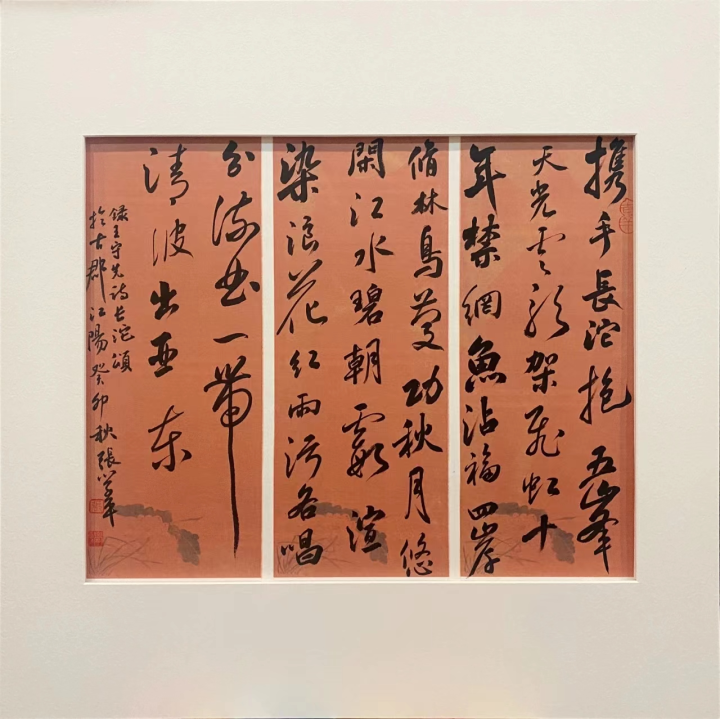 携手長沱抱五峯
天光雲影架飛虹十
年禁網魚沾福四岸
脩林鳥慶功秋月悠
閑江水碧朝霞渲
染浪花紅雨污各唱
分流曲一帶
清波出亞东
錄王守先詩长沱頌
於古郡江陽癸卯秋張